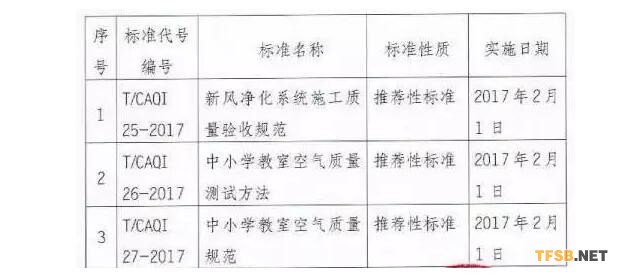 序号 标准代号编号 标准名称 标准性质 实施日期
1 T/CAQI 25-2017 新风净化系统施工质量验收规范 推荐性标准 2017年2月1日
2 T/CAQI 26-2017 中小学教室空气质量测试方法 推荐性标准 2017年2月1日
3 T/CAQI 27-2017 中小学教室空气质量规范 推荐性标准 2017年2月1日
TFSB.NET